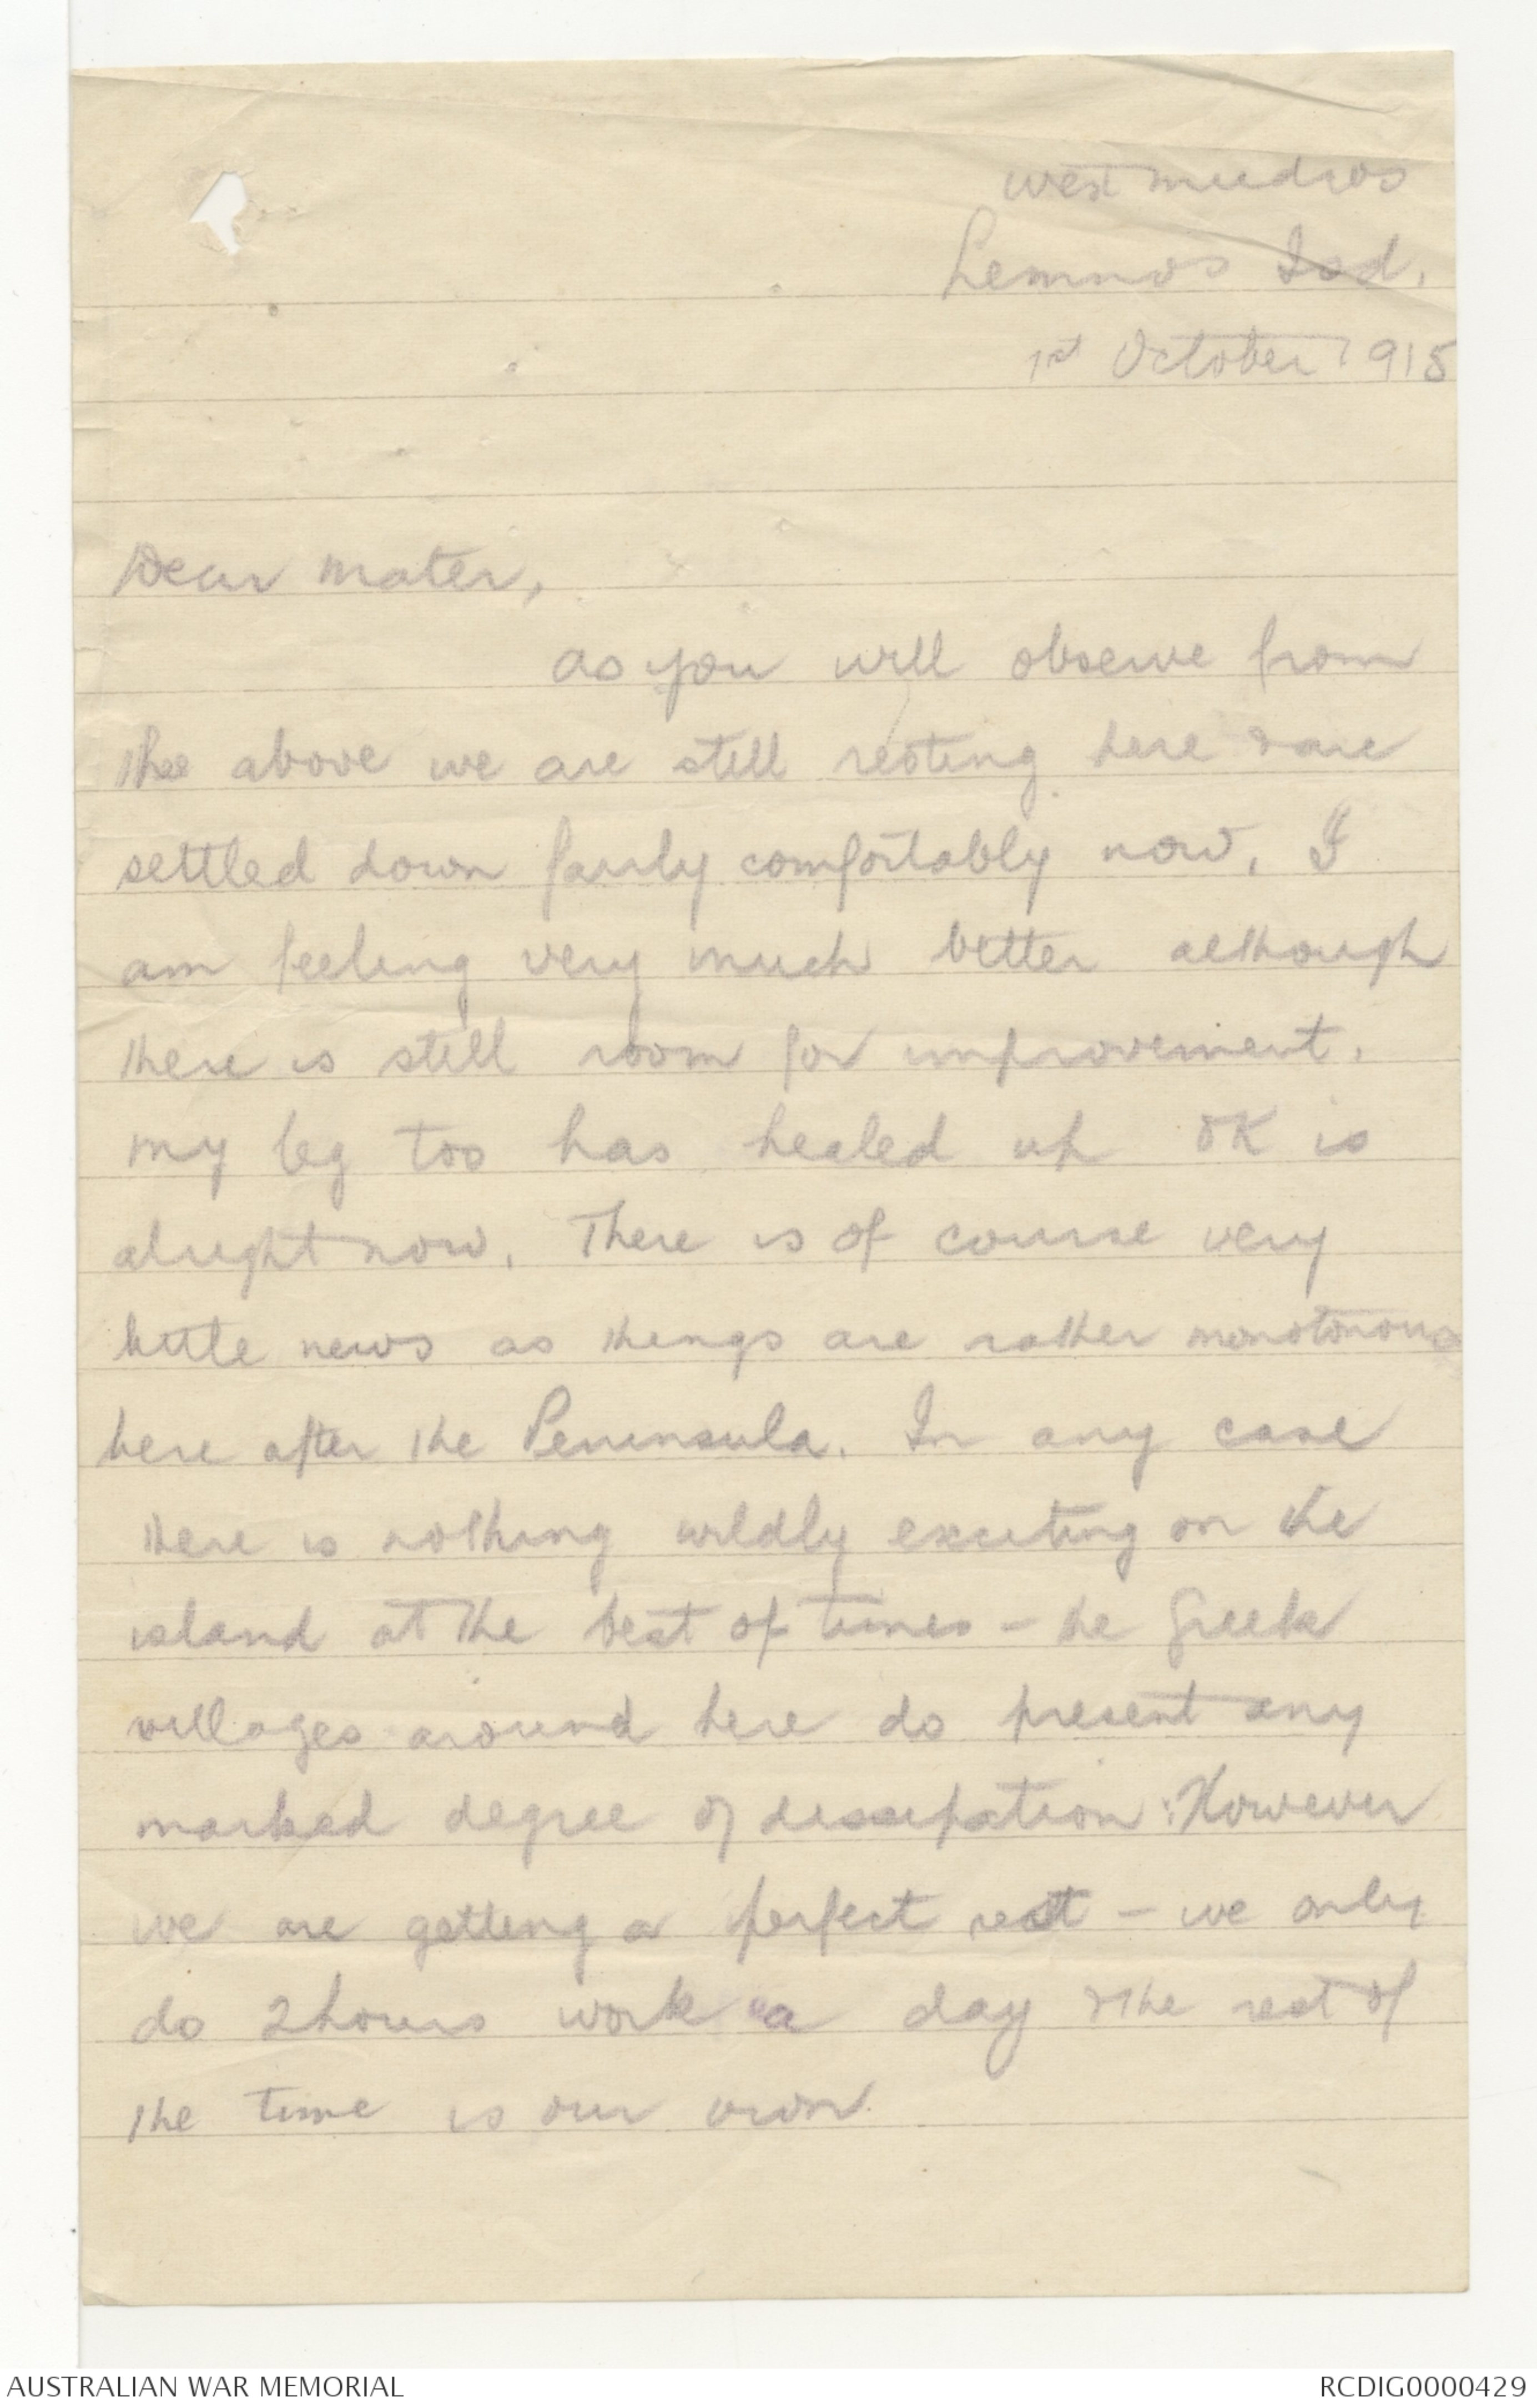 West Mudros
Lemnos Isd.
1st October 1915
Dear Mater,
As you will observe from
the above we are still resting here & are
settled down fairly comfortably now. I
am feeling very much better although
there is still room for improvement.
My leg too has healed up OK is
alright now. There is of course very
little news as things are rather monotonous
here after the Peninsula. In any case
there is nothing wildly exciting on the
island at the best of times - the Greek
villages around here do present any
marked degree of dissipation. However
we are getting a perfect rest - we only
do 2 hours work a day & the rest of
the time is our own.
AUSTRALIAN WAR MEMORIAL
RCDIG0000429